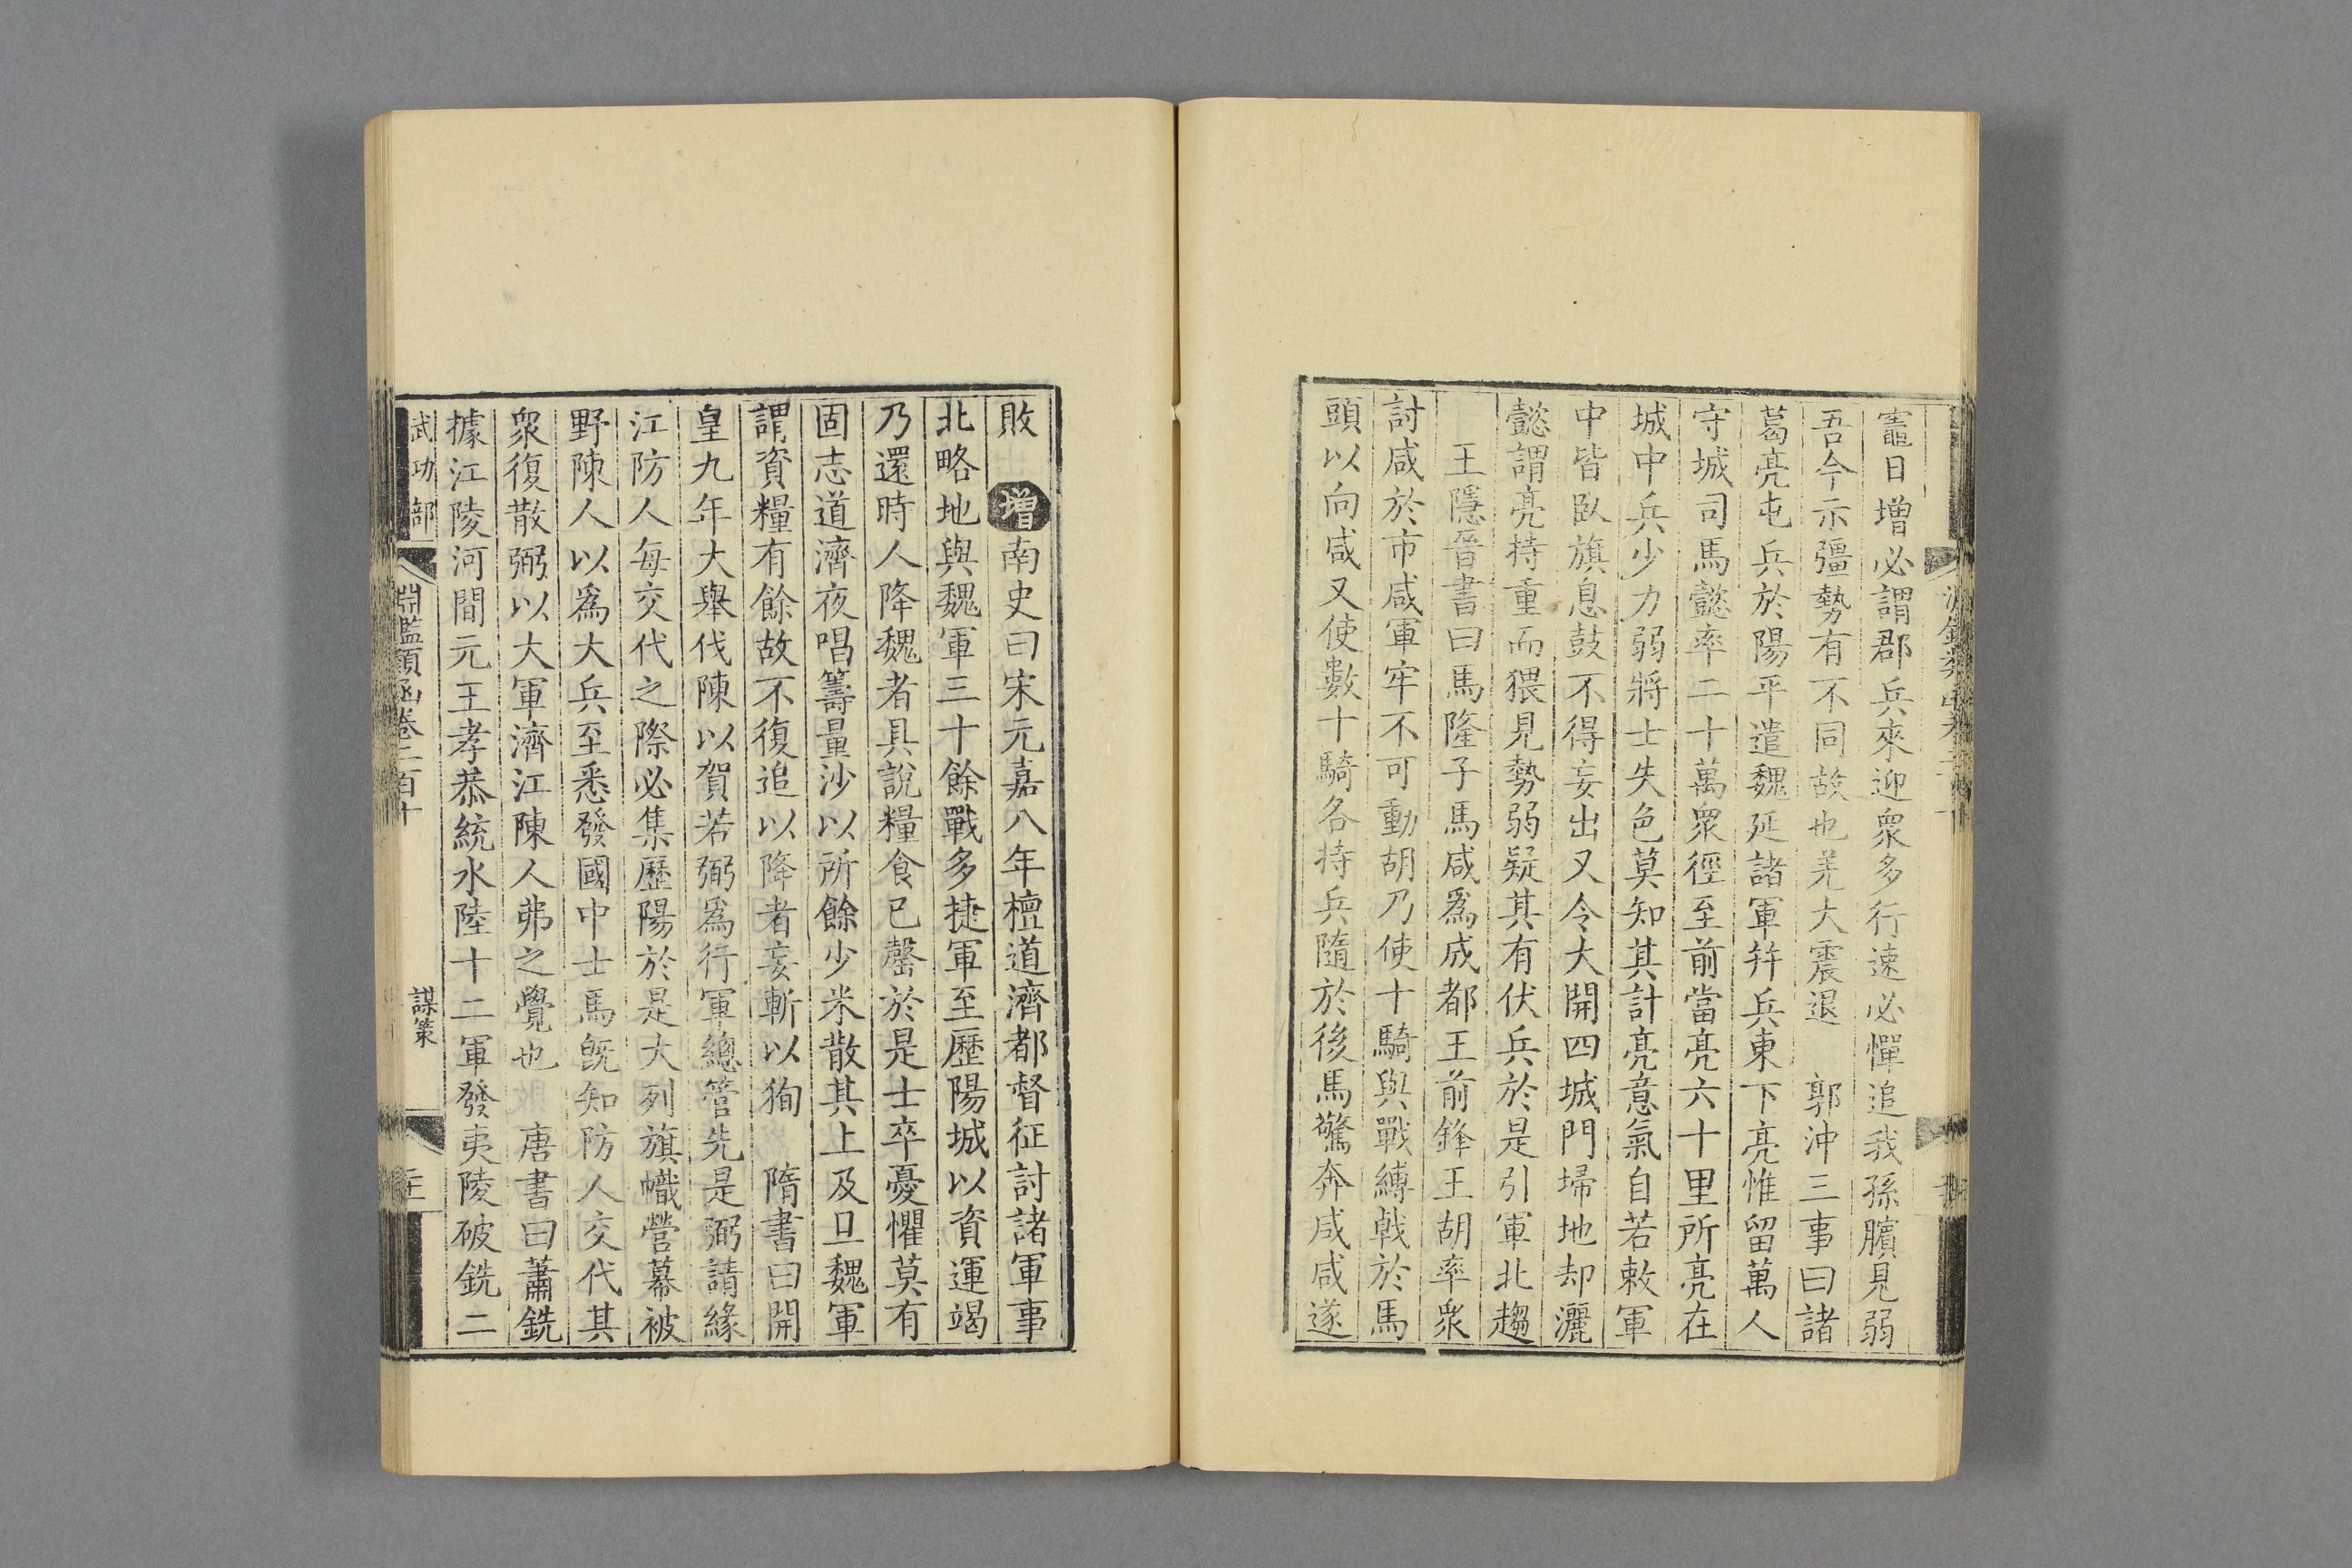 竈日增必謂郡兵來迎衆多行速必憚追我孫臏見弱
吾今示彊勢有不同故也羌大震退　郭沖三事曰諸
葛亮屯兵於陽平遣魏延諸軍幷兵東下亮惟留萬人
守城司馬懿率二十萬衆徑至前當亮六十里所亮在
城中兵少力弱將士失色莫知其計亮意氣自若敕軍
中皆臥旗息鼓不得妄出又令大開四城門埽地却灑
懿謂亮持重而猥見勢弱疑其有伏兵於是引軍北趨
王隱晉書曰馬隆子馬咸爲成都王前鋒王胡率衆
討咸於市咸軍牢不可動胡乃使十騎與戰縛戟於馬
頭以向咸又使數十騎各持兵隨於後馬驚奔咸咸遂
敗　增南史曰宋元嘉八年檀道濟都督征討諸軍事
北略地與魏軍三十餘戰多捷軍至歷陽城以資運竭
乃還時人降魏者具說糧食已罄於是士卒憂懼莫有
固志道濟夜唱籌量沙以所餘少米散其上及旦魏軍
謂資糧有餘故不復追以降者妄斬以狥　隋書曰開
皇九年大舉伐陳以賀若弼爲行軍總管先是弼請緣
江防人每交代之際必集歷陽於是大列旗幟營幕被
野陳人以爲大兵至悉發國中士馬旣知防人交代其
衆復散弼以大軍濟江陳人弗之覺也　唐書曰蕭銑
據江陵河間元王孝恭統水陸十二軍發夷陵破銑二
武功部　淵鑑類函卷二百十　謀策